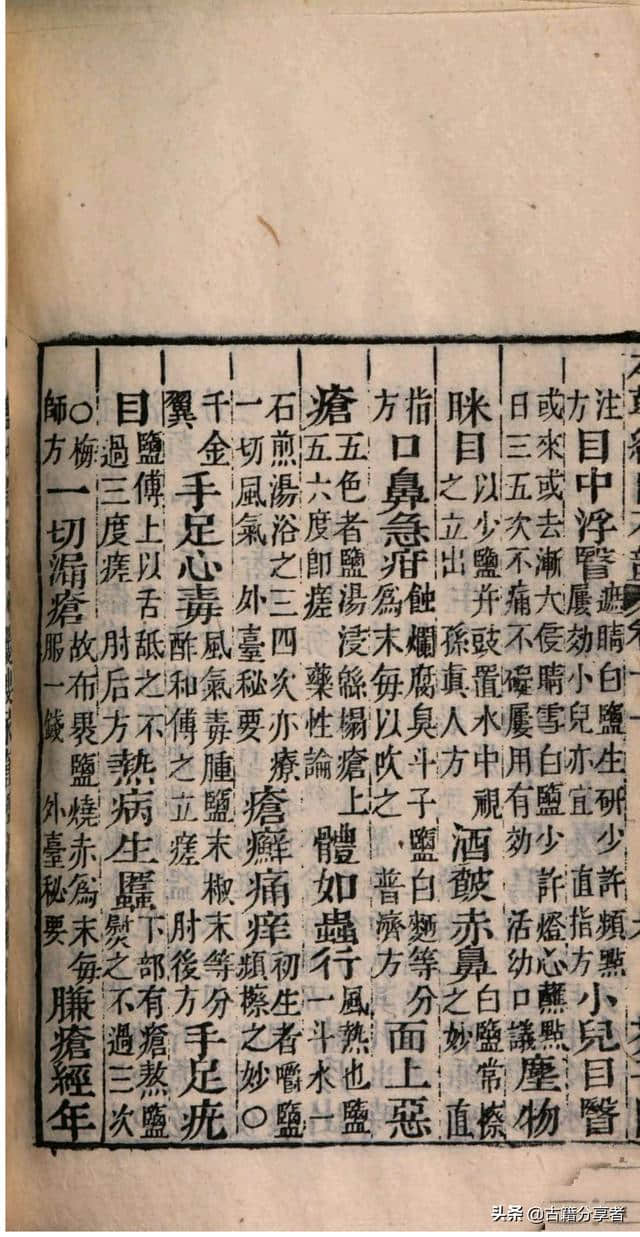 注方目中浮翳遮睛白鹽生研少許頻點屢効小兒亦宜 直指方小兒目翳
或來或去漸大侵睛雪白鹽少許燈心蘸點日三五次不痛不礙屢用有効 活幼口議塵物
眯目以少鹽并豉置水中視之立出 孫真人方酒皶赤鼻白鹽常擦之妙 直
指方口鼻急疳蝕爛腐臭斗子鹽白麵等分為末每以吹之 普濟方面上惡
瘡五色者鹽湯浸綿搨瘡上五六度即瘥 藥性論體如蟲行風熱也鹽一斗水一
石煎湯浴之三四次亦療一切風氣 外臺秘要瘡癬痛痒初生者嚼鹽頻擦之妙〇
千金翼手足心毒風氣毒腫鹽末椒末等分酢和傅之立瘥 肘後方手足疣
目鹽傅上以舌舐之不過三度瘥 肘后方熱病生䘌下部有瘡熬鹽熨之不過三次
〇梅師方一切漏瘡故布裹鹽燒赤為末每服一錢 外臺秘要臁瘡經年
头条 @古籍分享者